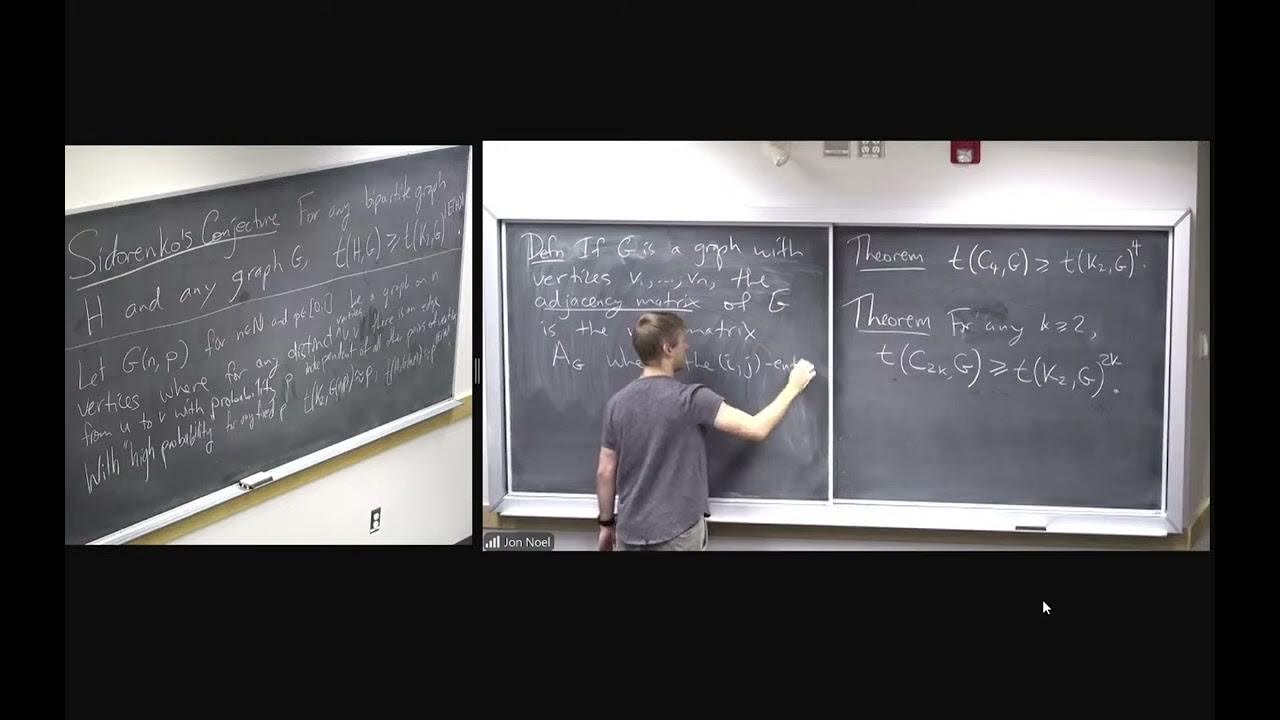 Sidorenko's Conjecture For any bipartite graph
H and any graph G, t(H,G) ≥ t(K₂,G)^|E(H)|.
Let G(n,p) for n∈ℕ and p∈[0,1] be a graph on n
vertices where for any distinct vertices u,v, there is an edge
from u to v with probability p independent of all other pairs of
With "high probability" for any fixed p t(K₂,G(n,p))≈p,
Defn If G is a graph with
vertices v₁,...,vₙ, the
adjacency matrix of G
is the matrix
A_G the (i,j)-ent
Theorem t(C₄,G) ≥ t(K₂,G)⁴.
Theorem For any k≥2,
t(C₂ₖ,G) ≥ t(K₂,G)²ᵏ.
Jon Noel